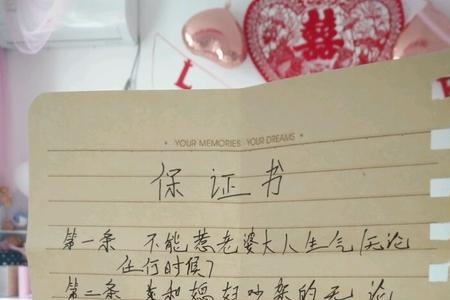 囍
L
YOUR MEMORIES YOUR DREAMS
保证书
第一条 不能惹老婆大人生气(无论
任何时候)
第二条 和媳妇吵架的无论